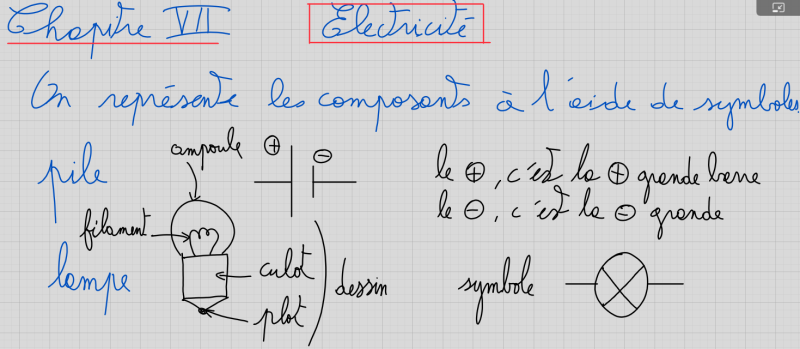 Chapitre VII Electricité
On représente les composants à l'aide de symboles.
pile ampoule ⊕ ⊖ le ⊕, c'est la ⊕ grande barre
le ⊖, c'est la ⊖ grande
filament
lampe culot dessin symbole
plot